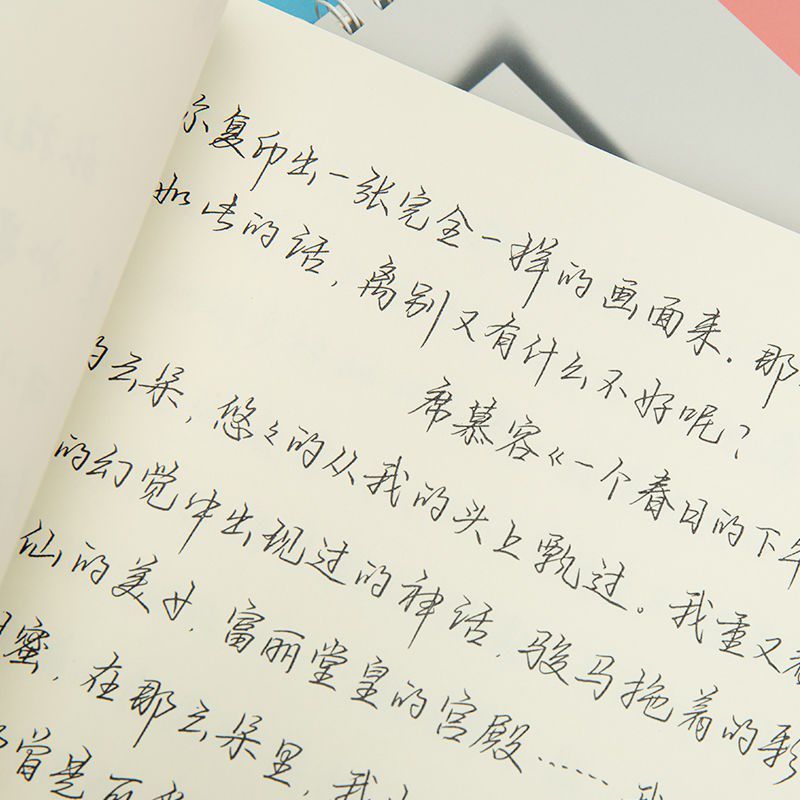 尔复印出一张完全一样的画面来。那
如此的话，离别又有什么不好呢？
席慕容《一个春日的下午
的云朵，悠々的从我的头上飘过。我重又看
的幻觉中出现过的神话，骏马拖着的彩
仙的美女，富丽堂皇的宫殿……我
蜜，在那云朵里，我
曾是